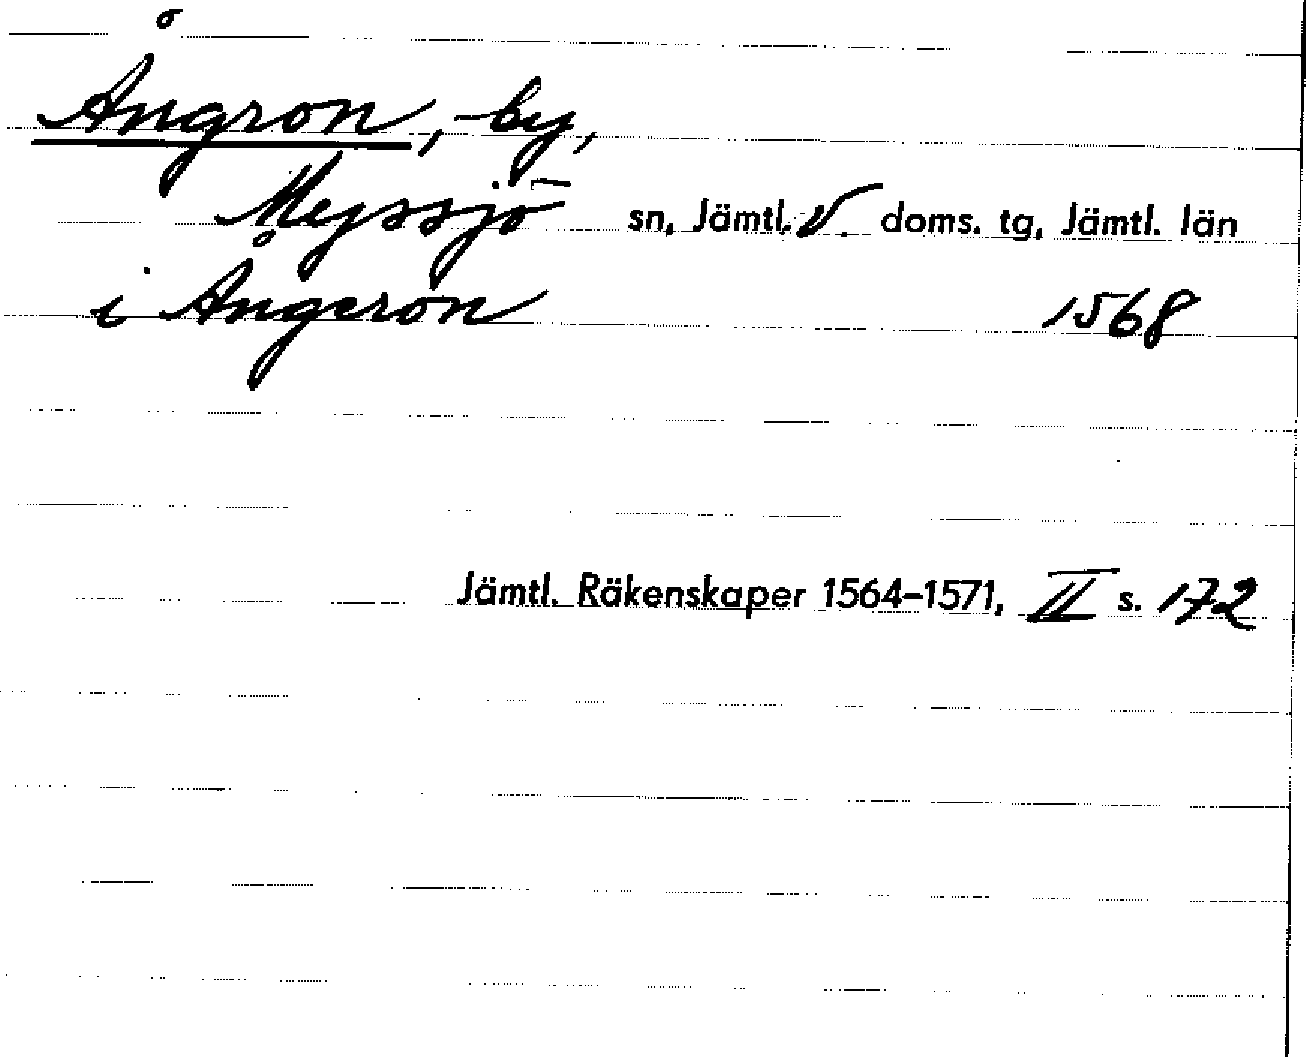 Ångron, -by,
Myssjö sn, Jämtl. V. doms. tg, Jämtl. län
i Ångeron 1568
Jämtl. Räkenskaper 1564–1571, II s. 172